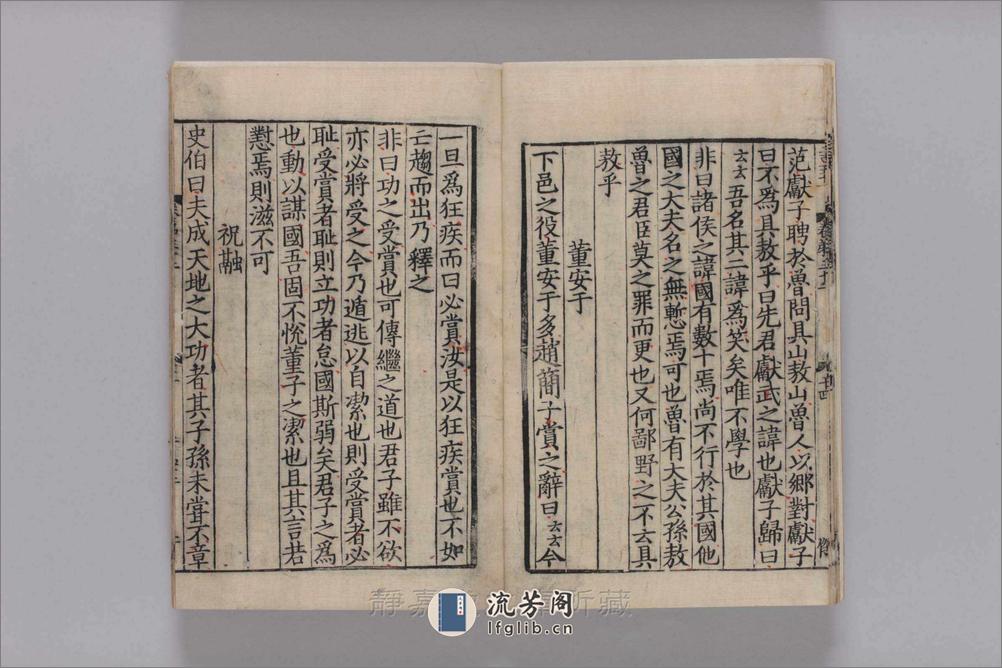 范獻子聘於魯問具山敖山魯人以鄉對獻子
曰不爲具敖乎曰先君獻武之諱也獻子歸曰
云云吾名其二諱爲笑矣唯不學也
非曰諸侯之諱國有數十焉尚不行於其國他
國之大夫名之無慙焉可也魯有大夫公孫敖
魯之君臣莫之罪而更也又何鄙野之不云具
敖乎
董安于
下邑之役董安于多趙簡子賞之辭曰云云今
一旦爲狂疾而曰必賞汝是以狂疾賞也不如
亡趨而出乃釋之
非曰功之受賞也可傳繼之道也君子雖不欲
亦必將受之今乃遁逃以自潔也則受賞者必
耻受賞者耻則立功者怠國斯弱矣君子之爲
也動以謀國吾固不悅董子之潔也且其言若
懟焉則滋不可
祝融
史伯曰夫成天地之大功者其子孫未甞不章
流芳阁
lfglib.cn